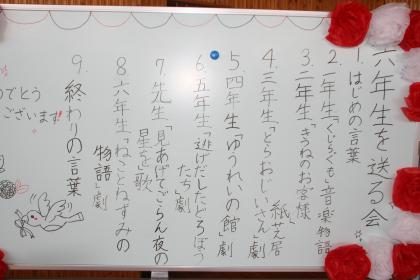 六年生を送る会
1. はじめの言葉
2. 一年生「くじらぐも」音楽物語
3. 二年生「きつねのお客様」
紙芝居
4. 三年生「とらおおじいさん」劇
5. 四年生「ゆうれいの館」劇
6. 五年生「逃げだしたどろぼう
たち」劇
7. 先生「見あげてごらん夜の
星を」歌
8. 六年生「ねことねずみの
物語」劇
9. 終わりの言葉
でとう
ございます!!